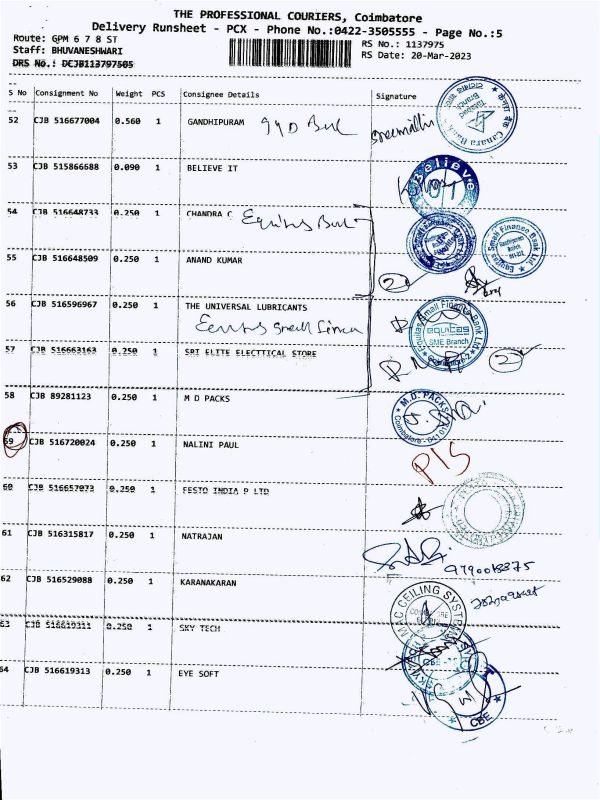 THE PROFESSIONAL COURIERS, Coimbatore
Delivery Runsheet - PCX - Phone No.:0422-3505555 - Page No.:5
Route: GPM 6 7 8 ST
RS No.: 1137975
Staff: BHUVANESHWARI
RS Date: 20-Mar-2023
DRS No.: DCJB113797505
S No Consignment No Weight PCS Consignee Details Signature
52 CJB 516677004 0.560 1 GANDHIPURAM
Canara Bank
53 CJB 515866688 0.090 1 BELIEVE IT
Believe
54 CJB 516648733 0.250 1 CHANDRA C Equitas
Equitas Small Finance Bank Ltd.
55 CJB 516648509 0.250 1 ANAND KUMAR
2
56 CJB 516596967 0.250 1 THE UNIVERSAL LUBRICANTS
Equitas Small Finance Bank Ltd
equitas
SME Branch
57 CJB 516663163 0.250 1 SRI ELITE ELECTTICAL STORE
2
58 CJB 89281123 0.250 1 M D PACKS
M.D. PACKS
Coimbatore
59 CJB 516720024 0.250 1 NALINI PAUL
PIS
60 CJB 516657073 0.250 1 FESTO INDIA P LTD
61 CJB 516315817 0.250 1 NATRAJAN
9790018375
62 CJB 516529088 0.250 1 KARANAKARAN
CEILING SYSTEM
63 CJB 516619311 0.250 1 SKY TECH
CBE
64 CJB 516619313 0.250 1 EYE SOFT
CBE